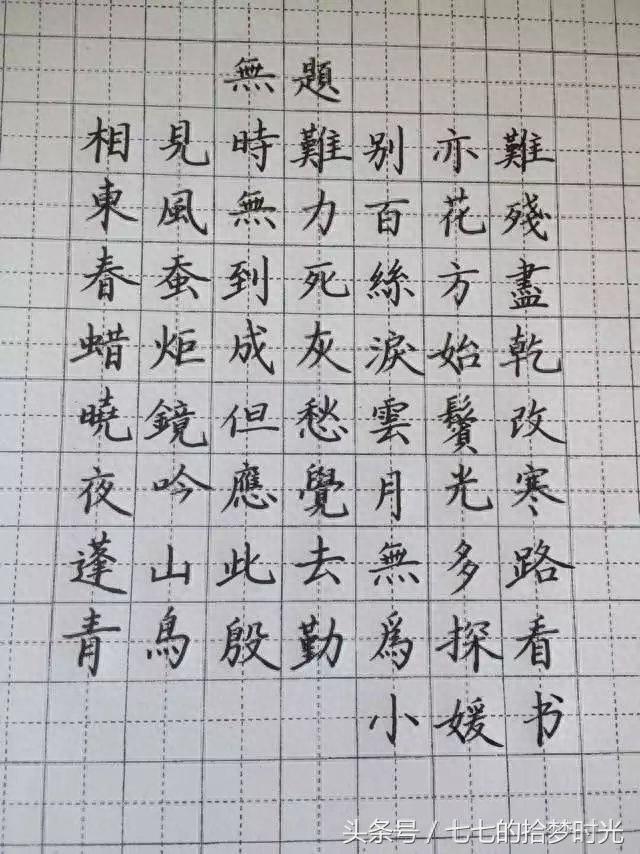 無題
相見時難别亦難
東風無力百花殘
春蚕到死絲方盡
蜡炬成灰淚始乾
曉鏡但愁雲鬢改
夜吟應覺月光寒
蓬山此去無多路
青鳥殷勤為探看
小媛书
头条号/七七的拾梦时光